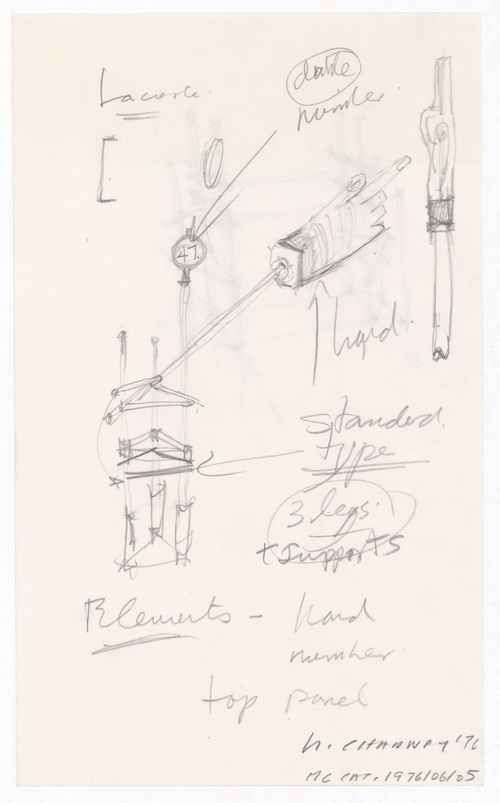 Lacoste.
double
number
47
hand.
standard
type
3 legs
+ supports
Elements - hand
number
top panel
M. CHARNEY '76
MC CAT. 1976/06/05